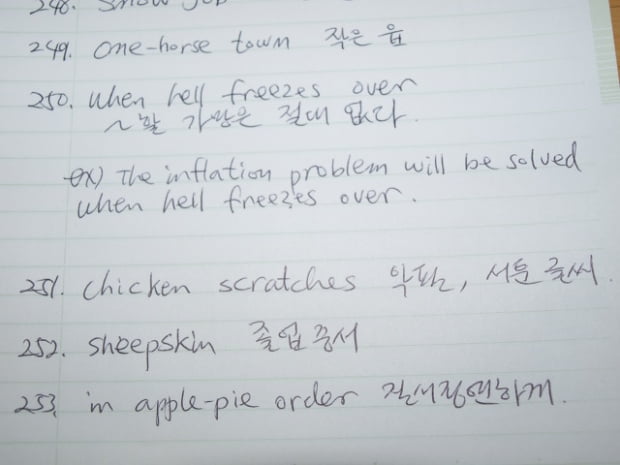 248. Snow job
249. one-horse town 작은 읍
250. when hell freezes over
~할 가망은 절대 없다.
ex) The inflation problem will be solved
when hell freezes over.
251. chicken scratches 악필, 서툰 글씨.
252. sheepskin 졸업증서
253. in apple-pie order 질서정연하게.